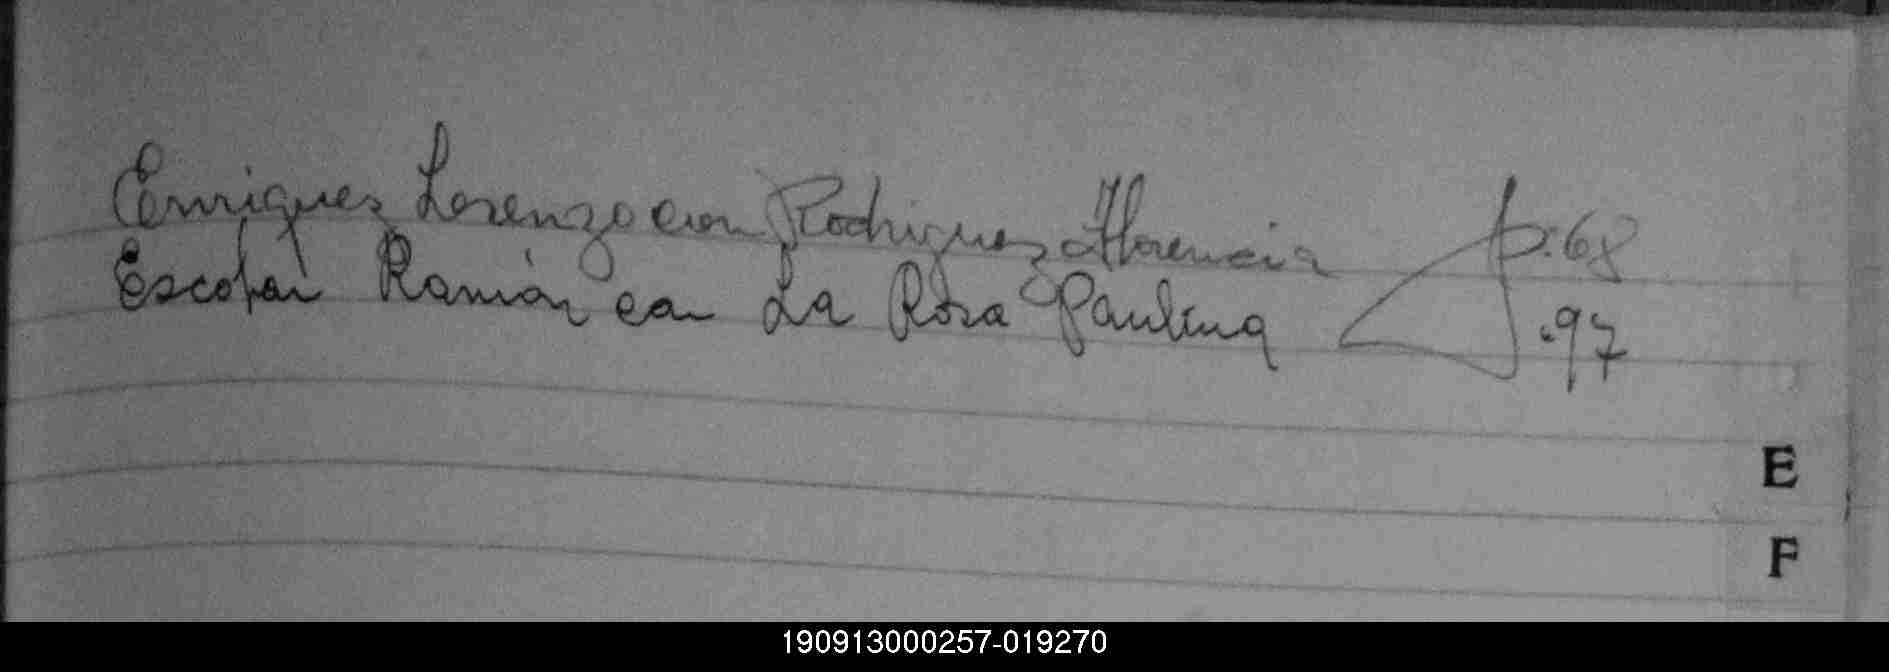 Enriquez Lorenzo con Rodriguez Florencia p. 68
Escobar Ramón con La Rosa Paulina p. 97
E
F
190913000257-019270